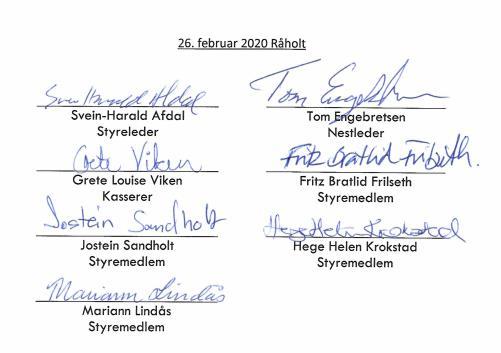 26. februar 2020 Råholt
Svein Harald Afdal
Svein-Harald Afdal
Styreleder
Tom Engebretsen
Tom Engebretsen
Nestleder
Grete Viken
Grete Louise Viken
Kasserer
Fritz Bratlid Frilseth.
Fritz Bratlid Frilseth
Styremedlem
Jostein Sandholt
Jostein Sandholt
Styremedlem
Hege Helen Krokstad
Hege Helen Krokstad
Styremedlem
Mariann Lindås
Mariann Lindås
Styremedlem